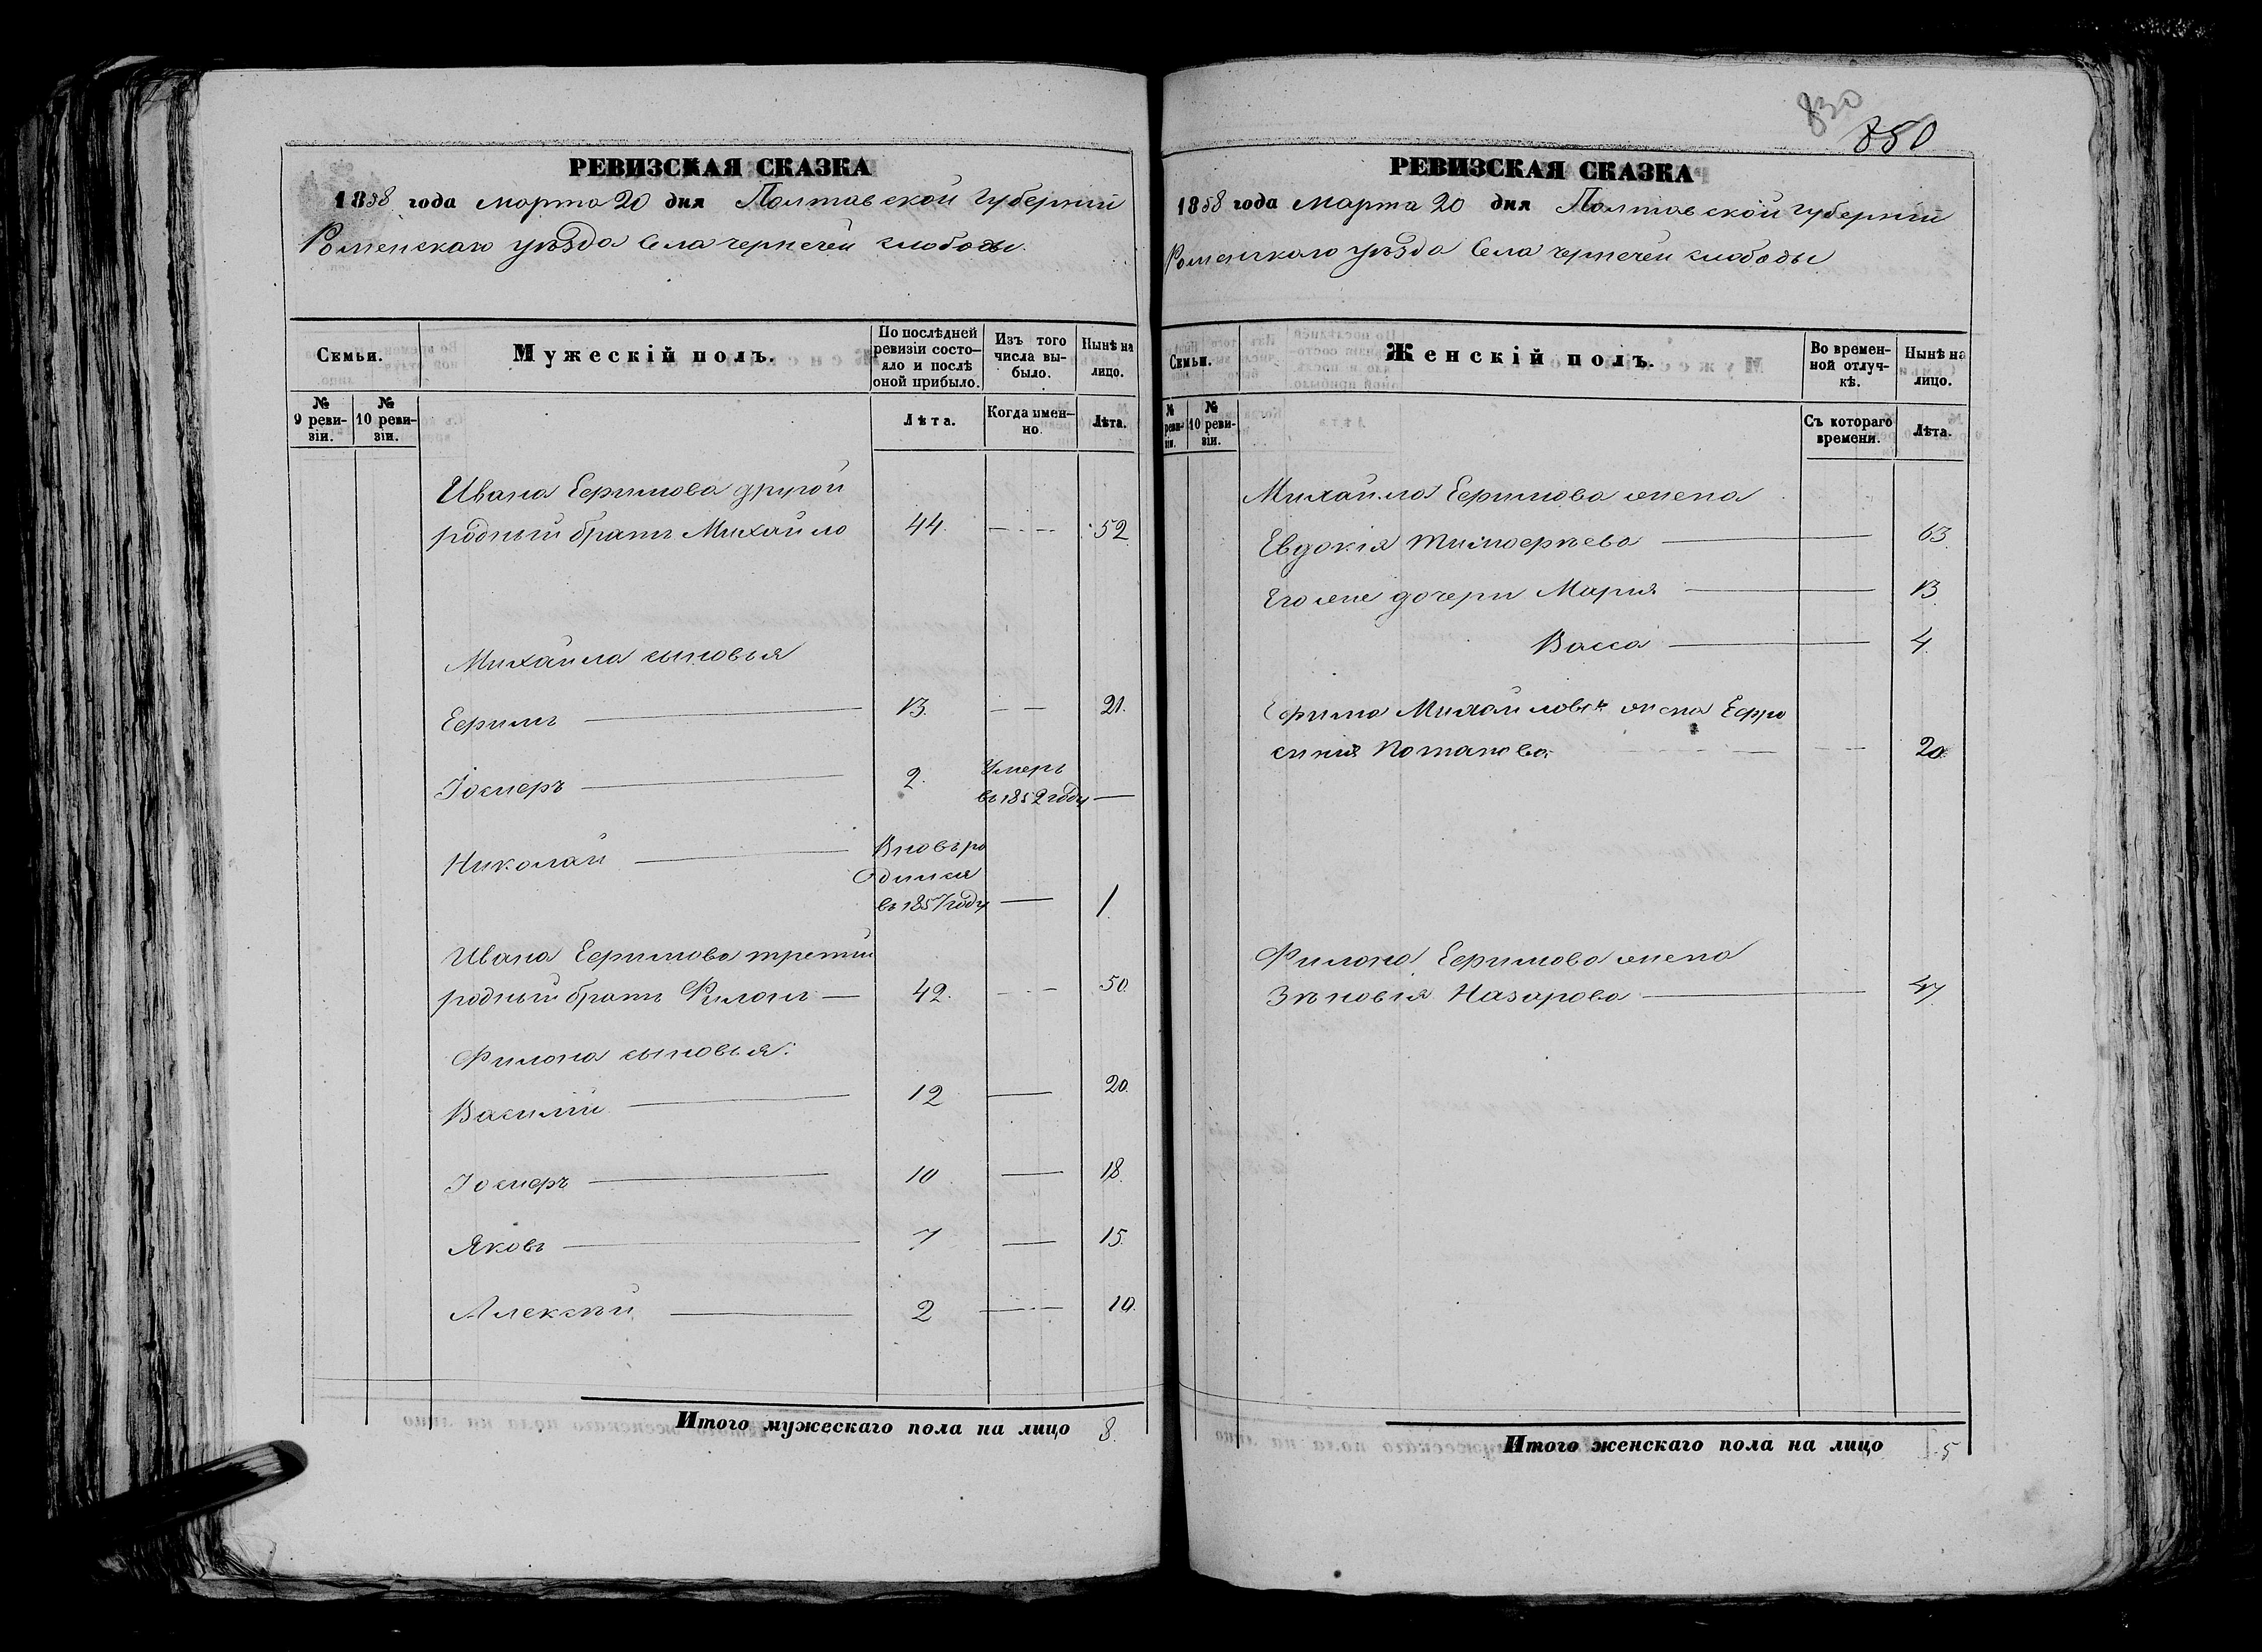 РЕВИЗСКАЯ СКАЗКА
1858 года марта 20 дня Полтавской губерніи
Роменскаго уѣзда Села чернечей слободы
Семьи.
Мужескій полъ.
По послѣдней ревизіи состояло и послѣ оной прибыло.
Изъ того числа выбыло.
Нынѣ на лицо.
№ 9 ревизіи.
№ 10 ревизіи.
Лѣта.
Когда именно.
Лѣта.
Ивана Ефимова другой
родный братъ Михайло 44. 52
Михайла сыновья
Ефимъ 13. 21.
Іосифъ 2. Умеръ
въ 1852 году
Николай Вновь ро
дился
въ 1857 году 1.
Ивана Ефимова третій
родный братъ Филонъ 42. 50.
Филона сыновья:
Василій 12 20.
Іосифъ 10 18.
Яковъ 7 15.
Алексѣй 2 10.
Итого мужескаго пола на лицо 8.
830
850
РЕВИЗСКАЯ СКАЗКА
1858 года марта 20 дня Полтавской губерніи
Роменскаго уѣзда Села чернечей слободы
Семьи.
Женскій полъ.
Во временной отлучкѣ.
Нынѣ на лицо.
№ ревизіи.
№ 10 ревизіи.
Съ котораго времени.
Лѣта.
Михайла Ефимова жена
Евдокія Тимофеева
Его же дочери Марія 13.
Васса 4.
Ефима Михайлова жена Ефро
синія Потапова 20
Филона Ефимова жена
Зѣновія Назарова 47
Итого женскаго пола на лицо 5